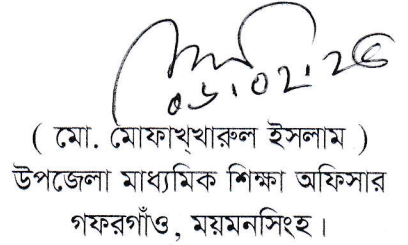 ০৮.০২.২৬
( মো. মোফাখ্খারুল ইসলাম )
উপজেলা মাধ্যমিক শিক্ষা অফিসার
গফরগাঁও, ময়মনসিংহ।